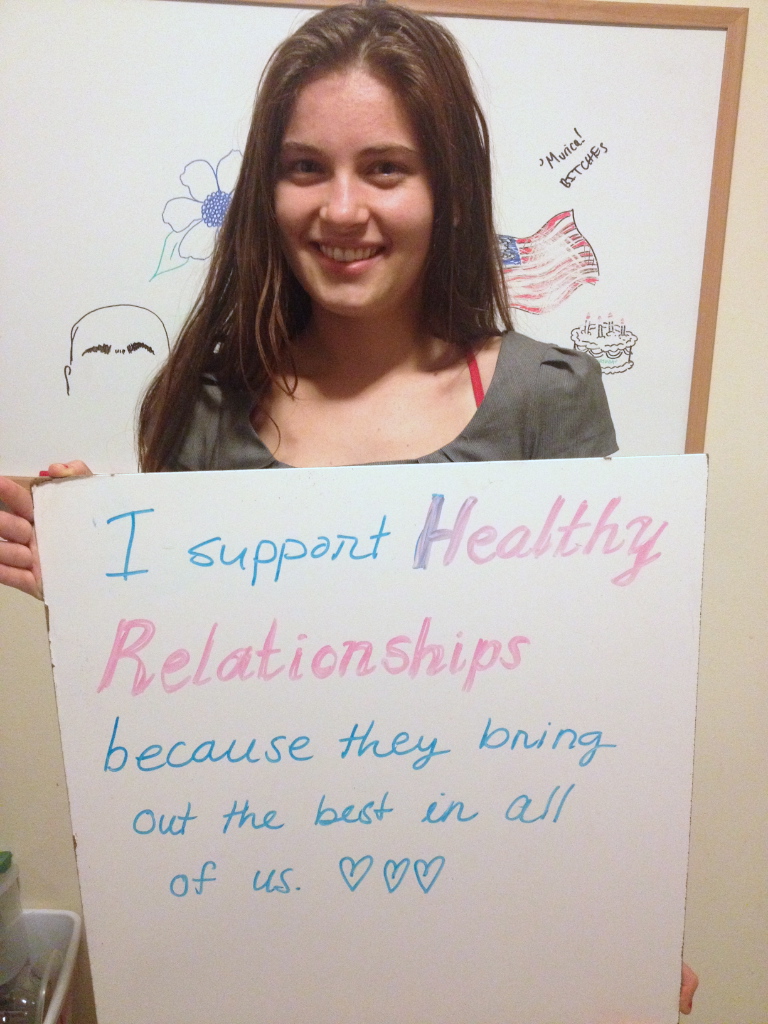 'Murica!
BITCHES
I support Healthy
Relationships
because they bring
out the best in all
of us. ♡♡♡